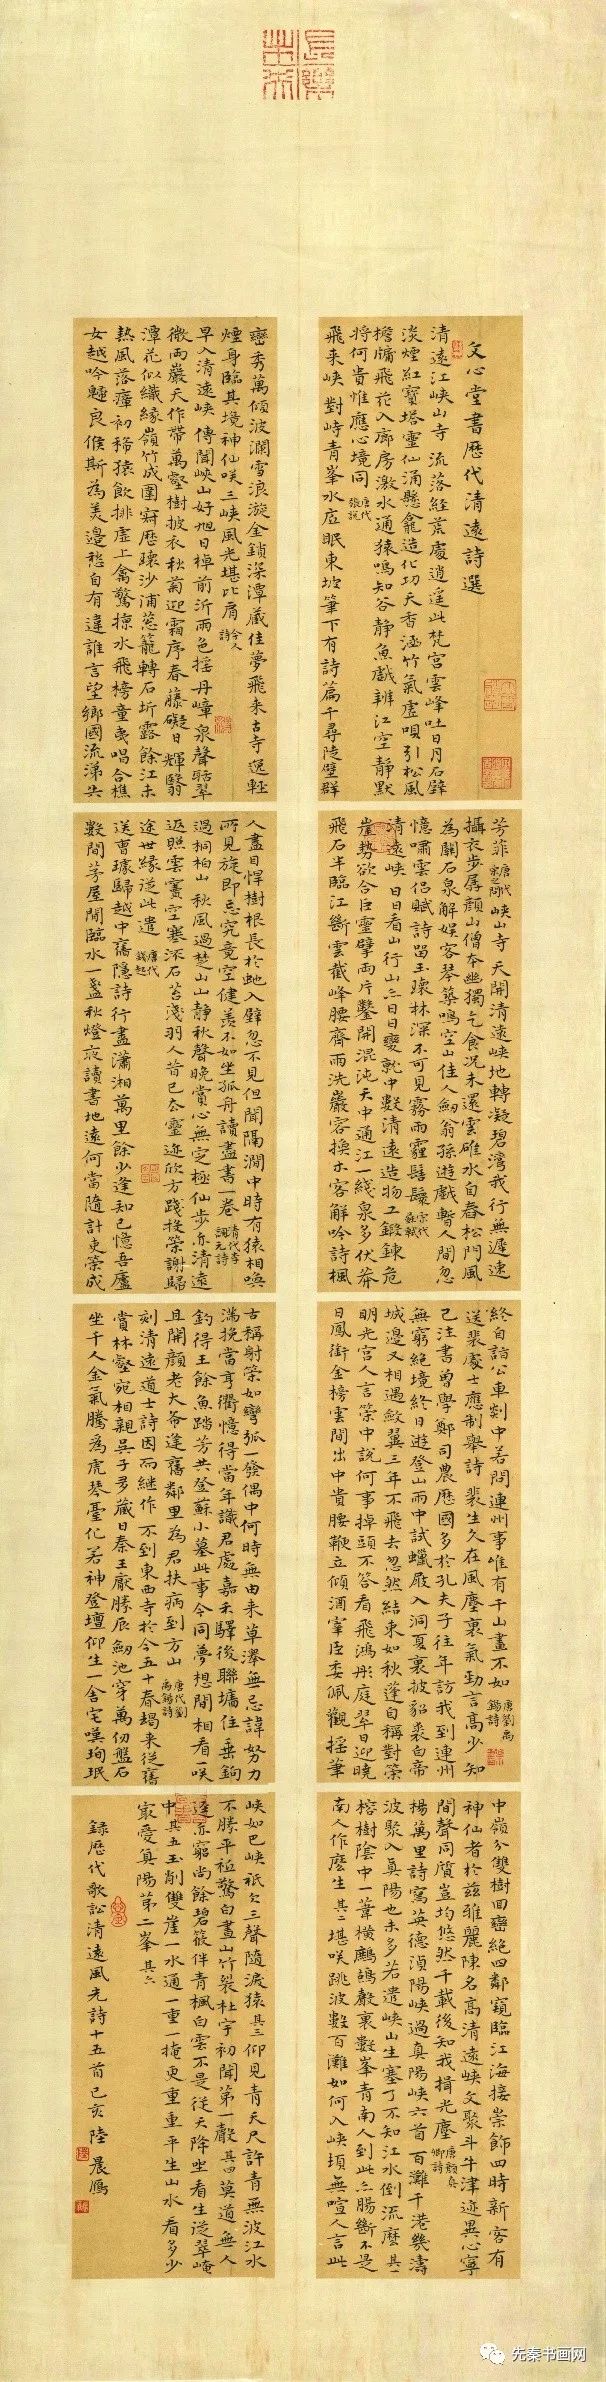 文心堂書歷代清遠詩選
清遠江峽山寺 流落經荒處逍遙此梵宮雲峰吐日月石壁
淡煙紅寶塔靈仙涌懸龕造化功天香涵竹氣虛唄引松風
檐牖飛花入廊房激水通猿鳴知谷静魚戲辨江空静默
將何貴惟應心境同 唐代張說
飛來峽 對峙青峯水底眠東坡筆下有詩篇千尋陡壁群
巒秀萬傾波瀾雪浪漩金鎖深潭藏佳夢飛來古寺逸輕
煙身臨其境神仙咲三峽風光堪比肩 今人詩
早入清遠峽 傳聞峽山好旭日棹前沂雨色搖丹嶂泉聲聒翠
微兩巖天作帶萬壑樹披衣秋菊迎霜序春藤礙日輝翳
潭花似織緣嶺竹成圍寂歷環沙浦葱籠轉石圻露餘江未
熱風落瘴初稀猿飲排虛上禽驚掠水飛榜童夷唱合樵
女越吟歸良候斯為美邊愁自有違誰言望鄉國流涕失
芳菲 唐代宋之問 峽山寺 天開清遠峽地轉凝碧灣我行無遲速
攝衣步孱顏山僧本幽獨乞食況未還雲碓水自舂松門風
為關石泉解娛客琴築鳴空山佳人劍翁孫遊戲暫人間忽
憶嘯雲侶賦詩留玉環林深不可見霧雨霾髻鬟 宋代蘇軾
清遠峽 日日看山行山亦日日變就中數清遠造物工鍛鍊危
崖勢欲合巨靈擘兩片鑿開混沌天中通江一綫泉多伏莽
飛石半臨江斷雲截峰腰齊雨洗巖容換木客解吟詩楓
人盡目悍樹根長於虵入壁忽不見但聞隔澗中時有猿相喚
所見旋即忘究竟空健羨不如坐孤舟讀盡書一卷 清代李調元詩
過桐柏山 秋風過楚山山靜秋聲晚賞心無定極仙步亦清遠
返照雲竇空寒流石苔淺羽人昔已去靈迹欣方踐投策謝歸
途世緣從此遣 唐代錢起
送曹璩歸越中舊隱詩 行盡瀟湘萬里餘少逢知己憶吾廬
數間茅屋閒臨水一盞秋燈夜讀書地遠何當隨計吏策成
終自詣公車剡中若問連州事唯有千山畫不如 唐劉禹錫詩
送裴處士應制舉詩 裴生久在風塵裏氣勁言高少知
己注書曾學鄭司農歷國多於孔夫子往年訪我到連州
無窮絕境終日遊登山雨中試蠟屐入洞夏裏披貂裘白帝
城邊又相遇斂翼三年不飛去忽然結束如秋蓬自稱對策
明光宮人言策中說何事掉頭不答看飛鴻彤庭翠日迎曉
日鳳銜金榜雲間出中貴腰鞭立傾酒宰臣委佩觀搖筆
古稱射策如彎弧一發偶中何時無由來草澤無忌諱努力
滿挽當亨衢憶得當年識君處嘉禾驛後聯墉住垂鉤
釣得王餘魚踏芳共登蘇小墓此事今同夢想間相看一咲
且開顏老大希逢舊鄰里為君扶病到方山 唐代劉禹錫詩
刻清遠道士詩因而繼作 不到東西寺於今五十春朅來從舊
賞林壑宛相親吳子多藏日秦王厭勝辰劍池穿萬仞盤石
坐千人金氣騰為虎琴臺化若神登壇仰生一舍宅嘆珣珉
中嶺分雙樹回巒絕四鄰窺臨江海接崇飾四時新客有
神仙者於茲雅麗陳名高清遠峽文聚斗牛津迹異心寧
間聲同質豈均悠然千載後知我揖光塵 唐顏真卿詩
楊萬里詩寫英德湞陽峽過真陽峽六首 百灘千港幾濤
波聚入真陽也未多若遣峽山生塞了不知江水倒流麼 其一
榕樹陰中一葦橫鷓鴣聲裏數峯青南人到此亦腸斷不是
南人作麼生 其二 堪咲跳波數百灘如何入峽頓無喧人言此
峽如巴峽祇欠三聲隨淚猿 其三 仰見青天尺許青無波江水
不勝平秪驚白晝山竹裂杜宇初聞第一聲 其四 莫道無人
逕亦窮尚餘碧筱伴青楓白雲不是從天降坐看生從翠崦
中 其五 玉削雙崖一水通一重一掩更重重平生山水看多少
最愛真陽第二峯 其六
錄歷代歌訟清遠風光詩十五首己亥陸晨鳳
先秦书画网